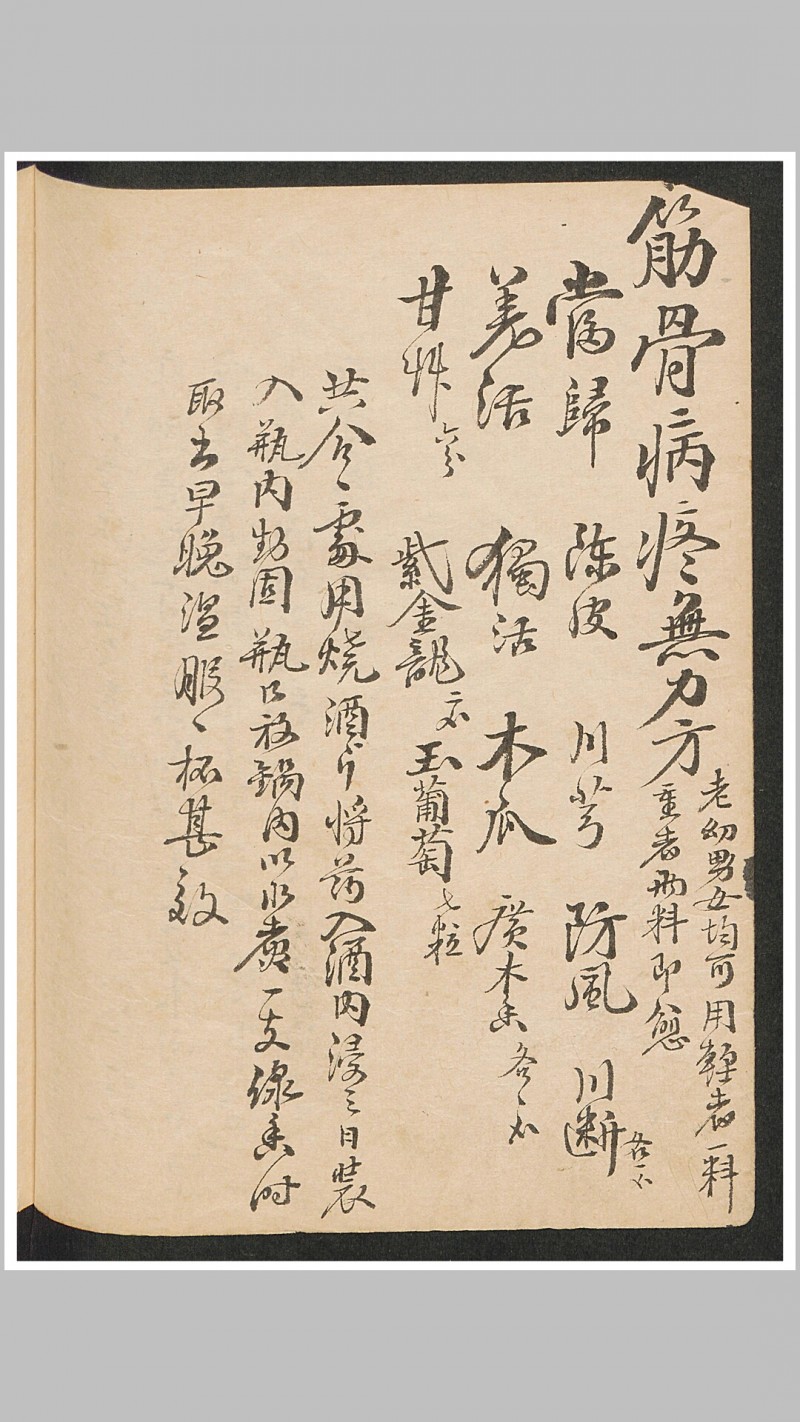 筋骨病疼無力方
老幼男女均可用輕者一料
重者兩料即愈
當歸 陳皮 川芎 防風 川断 各一
羌活 獨活 木瓜 廣木香 各
甘艸 紫金龍 玉葡萄 七粒
共合一處用燒酒 将药入酒内浸三日裝
入瓶内封固瓶口放鍋内以水煮一支線香时
取出早晚温服一杯甚效